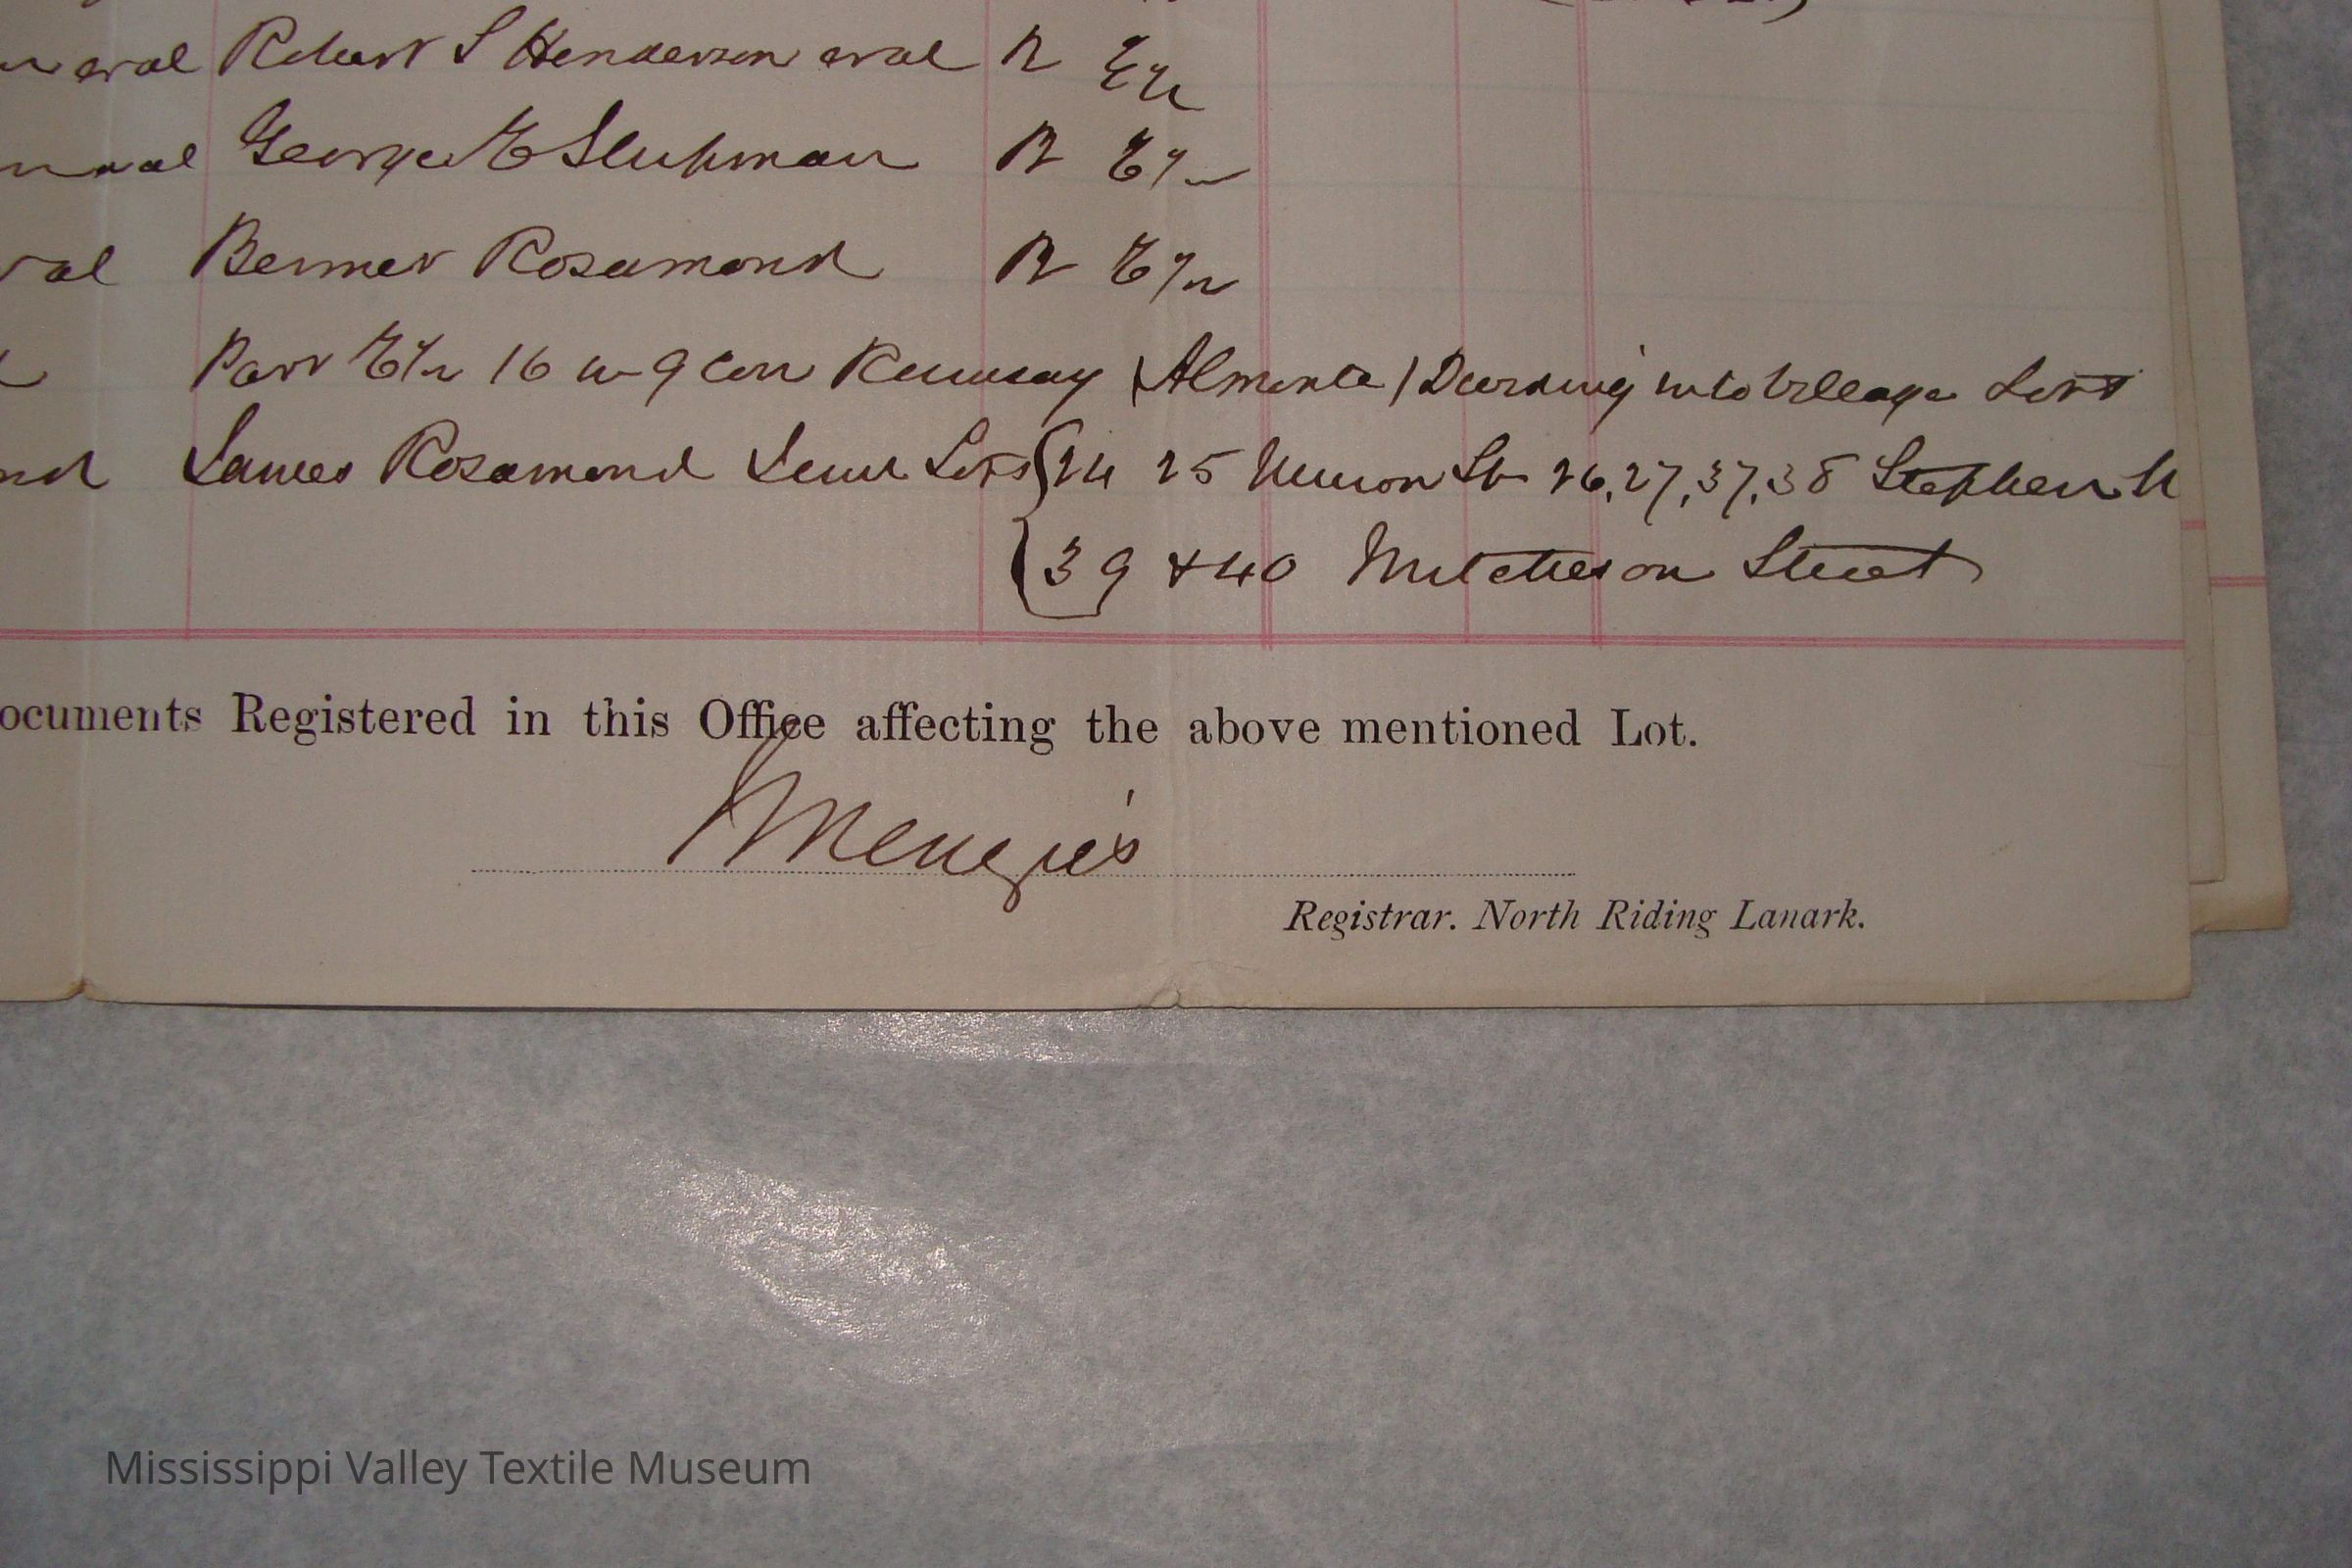 eral Robert S Henderson eral R E½
George E Shipman R E½
Bennet Rosamond R E½
Part E½ 16 in 9 Con Ramsay (Almonte) Dividing into Village Lots
James Rosamond Senr Lots {24 25 Union St 26, 27, 37, 38 Stephen St
{39 & 40 Mitcheson Street
ocuments Registered in this Office affecting the above mentioned Lot.
Menzies
Registrar. North Riding Lanark.
Mississippi Valley Textile Museum